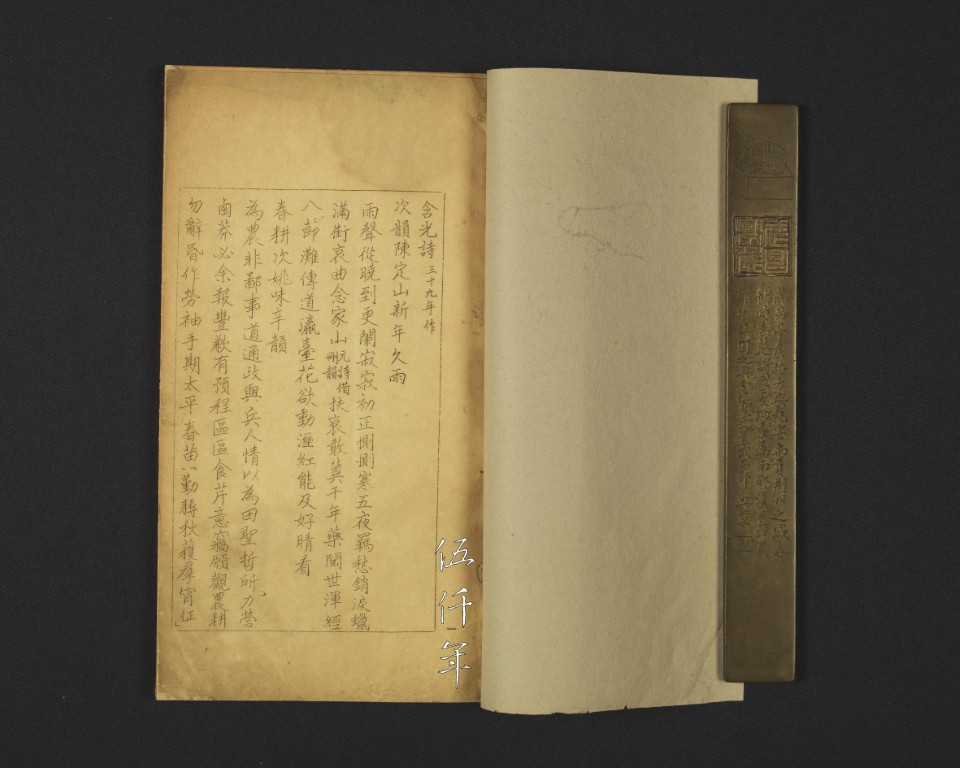 含光詩 三十九年作
次韻陳定山新年久雨
雨聲從曉到更闌寂寂初正惻惻寒五夜羈愁銷淚蠟
滿街哀曲念家山 元詩借刪韻 扶衰敢冀千年藥閱世渾經
八節灘傳道瀛臺花欲動溼紅能及好晴看
春耕次姚味辛韻
為農非鄙事道通政與兵人情以為田聖哲所力營
鹵莽必余報豐歉有預程區區食芹意竊願觀農耕
勿辭昏作勞袖手期太平春苗八勤耨秋穫羣甯征
伍仟年